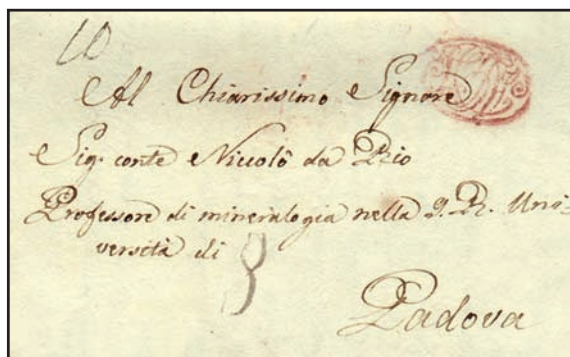 10
Al Chiarissimo Signore
Sig. conte Niccolò da Rio
Professore di mineralogia nella I. R. Uni-
versità di
3
Padova